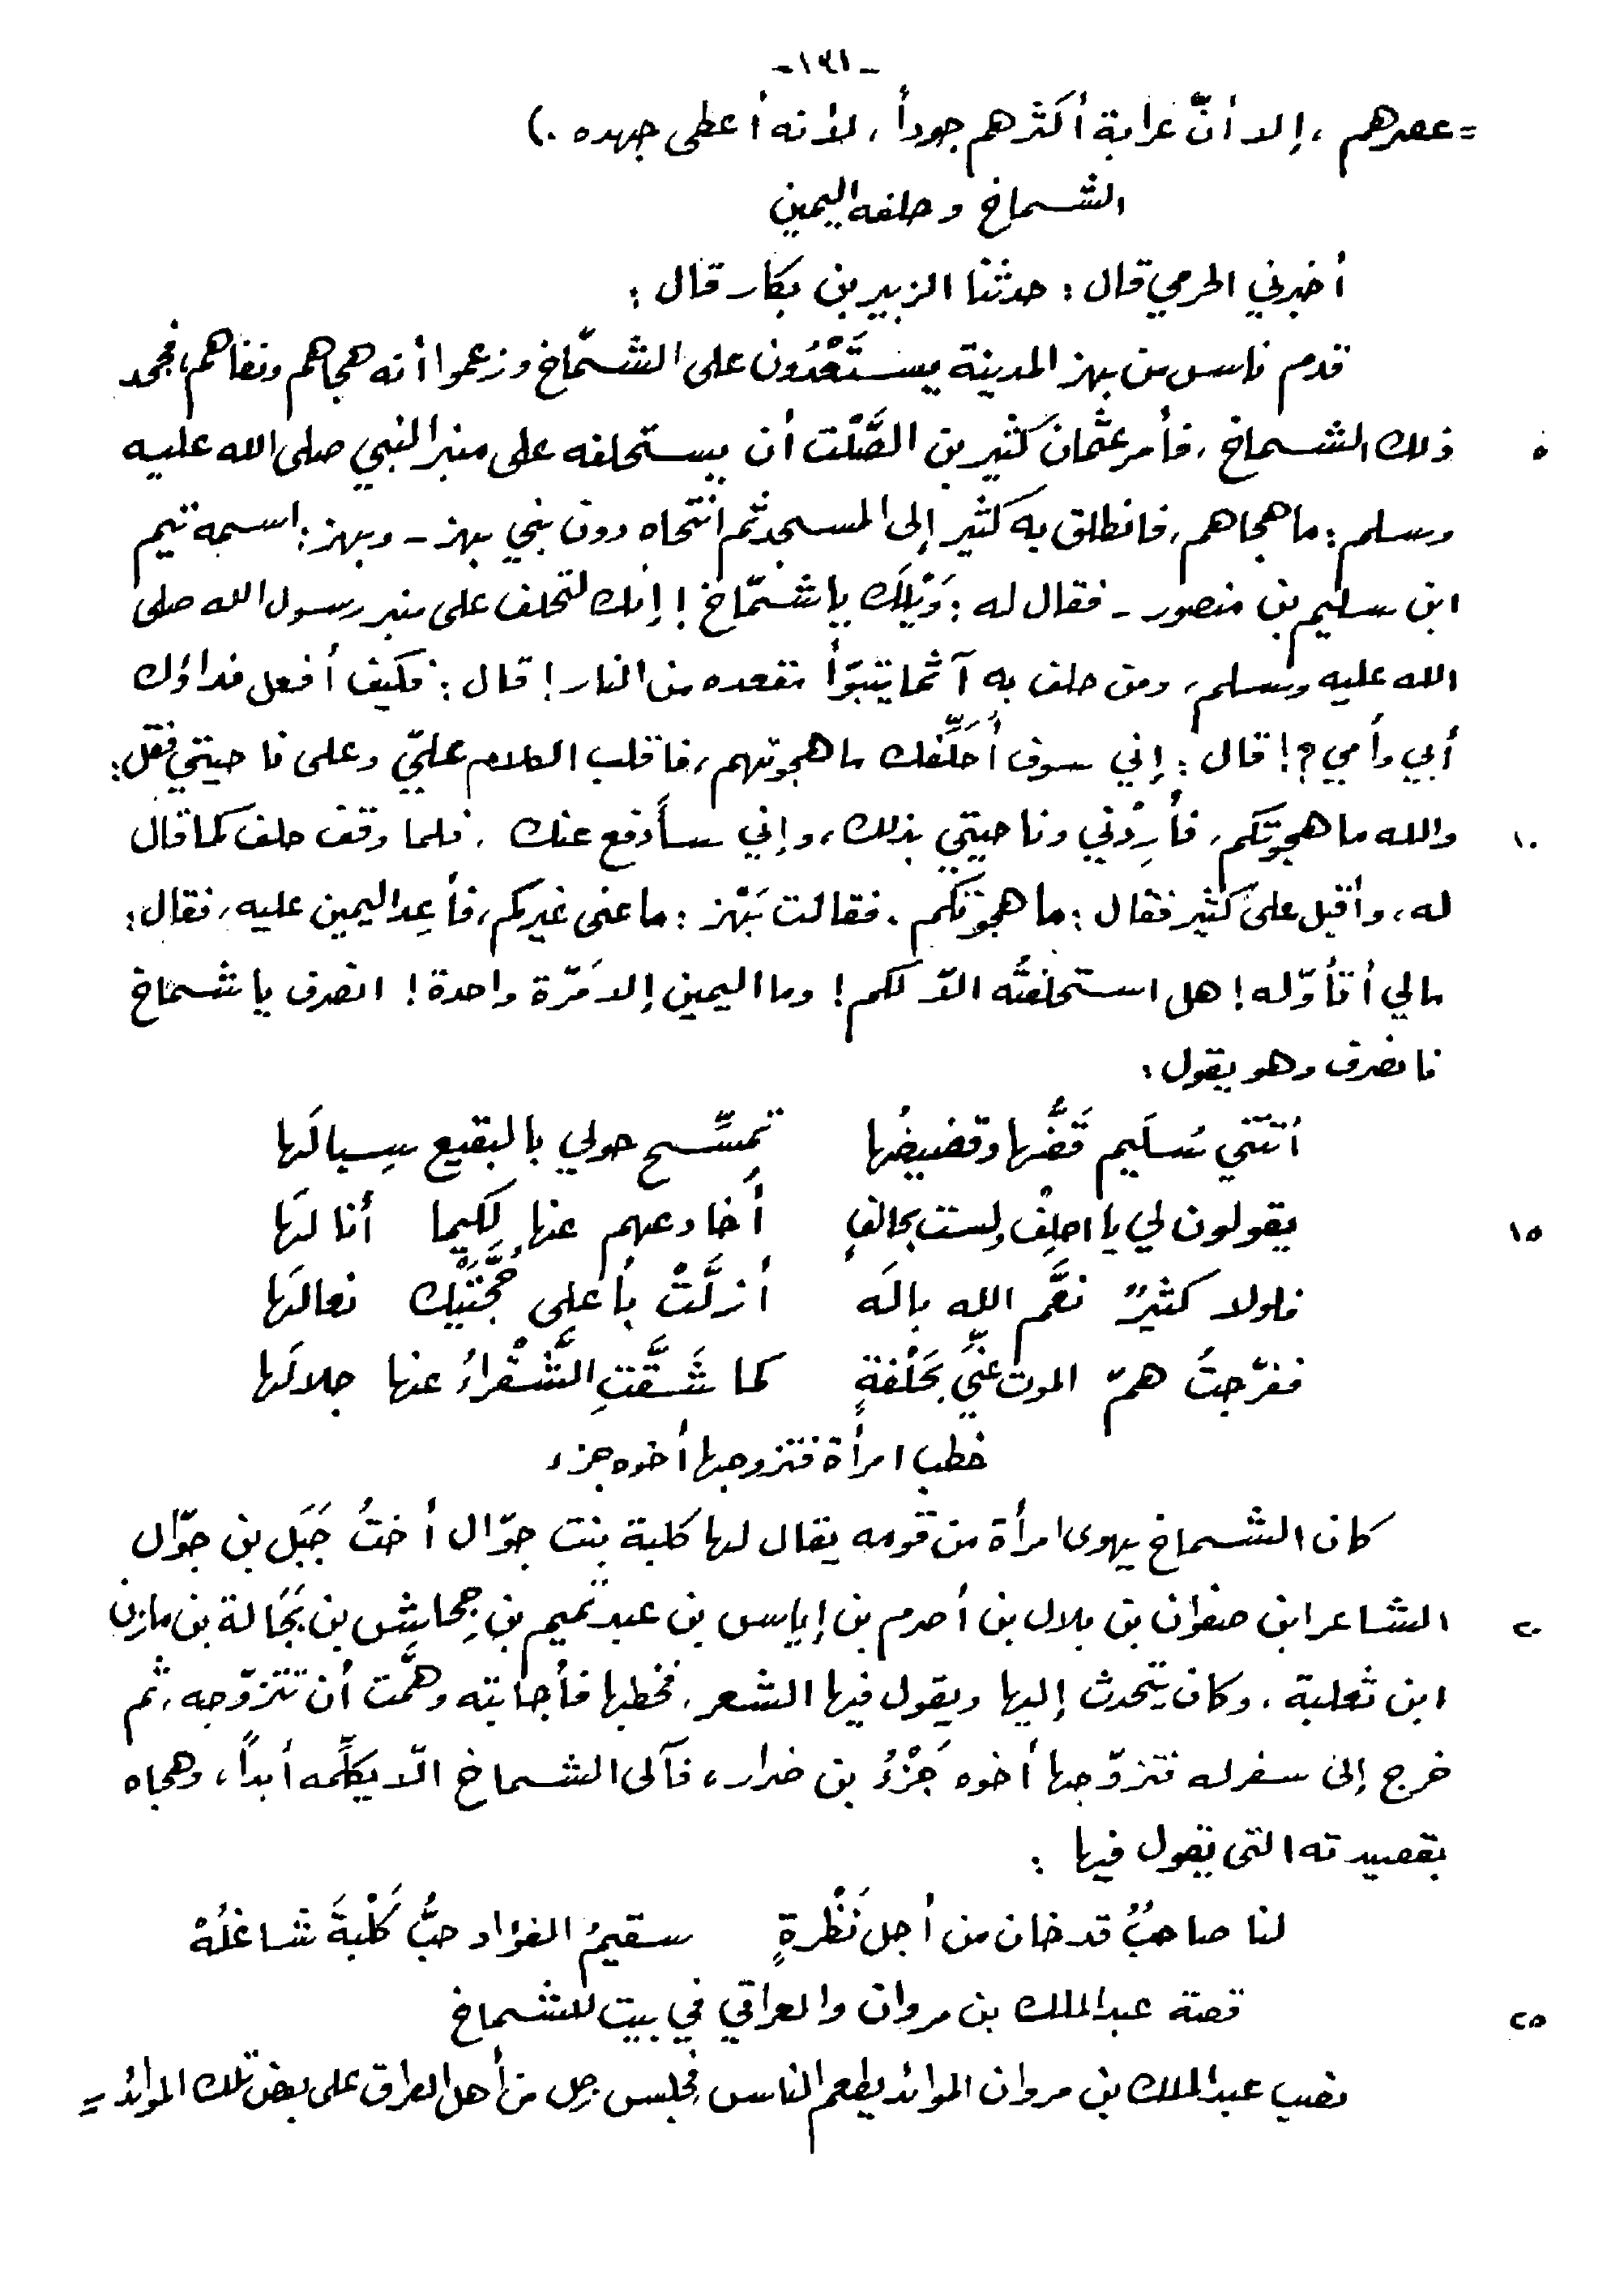 -١٤١-
= عصرهم ، إلا أنّ عرابة أكثرهم جوداً ، لأنه أعطى جهده .)
الشماخ وحلفه اليمين
أخبرني الحرمي قال : حدثنا الزبير بن بكار قال :
قدم ناس من بهز المدينة يستَعْدُون على الشمّاخ وزعموا أنه هجاهم ونفاهم ، فجحد
٥ ذلك الشماخ ، فأمر عثمان كثير بن الصَّلْت أن يستحلفه على منبر النبي صلى الله عليه
وسلم : ما هجاهم ، فانطلق به كثير إلى المسجد ثم انتحاه دون بني بهز - وبهز : اسمه تيم
ابن سليم بن منصور - فقال له : وَيْلَك يا شمّاخ ! إنك لتحلف على منبر رسول الله صلى
الله عليه وسلم ، ومن حلف به آثما يتبوّأ مقعده من النار ! قال : فكيف أفعل فداؤك
أبي وأمي ؟! قال : إني سوف أُحَلِّفك ما هجوتهم ، فاقلب الكلام عليّ وعلى ناحيتي فقل :
١٠ والله ما هجوتكم ، فأرِدْني وناحيتي بذلك ، وإني سأدفع عنك . فلما وقف حلف كما قال
له ، وأقبل على كثير فقال : ما هجوتكم . فقالت بَهْز : ما عنى غيركم ، فأعِد اليمين عليه ، فقال :
مالي أتأوّله ! هل استحلفتُه الّا لكم ! وما اليمين إلا مَرّة واحدة ! انصرف يا شماخ
فانصرف وهو يقول :
أتتني سُلَيم قَضُّها وقضيضُها تمسِّح حولي بالبقيع سِبالَها
١٥ يقولون لي يا احلِفْ ولست بحالفٍ أُخادعهم عنها لكيما أنالَها
فلولا كثيرٌ نعَّم الله بالَه أزلَّتْ بأعلى حُجَّتَيْك نعالَها
ففرّجتُ همّ الموت عنِّي بحَلْفةٍ كما شَقَّتِ الشَّقْراءُ عنها جلالَها
خطب امرأة فتزوجها أخوه جزء
كان الشماخ يهوى امرأة من قومه يقال لها كلبة بنت جوّال أختُ جَبَل بن جوّال
٢٠ الشاعر ابن صفوان بن بلال بن أصرم بن إياس بن عبد تميم بن جِحاش بن بَجَالة بن مازن
ابن ثعلبة ، وكان يتحدث إليها ويقول فيها الشعر ، فخطبها فأجابته وهمَّت أن تتزوّجه ، ثم
خرج إلى سفر له فتزوّجها أخوه جَزْءُ بن ضرار ، فآلى الشماخ الّا يكلِّمه أبداً ، وهجاه
بقصيدته التي يقول فيها :
لنا صاحبٌ قد خان من أجل نَظْرةٍ سقيمُ الفؤاد حبُّ كَلْبةَ شاغلُهْ
٢٥ قصة عبد الملك بن مروان والعراقي في بيت للشماخ
نصب عبد الملك بن مروان الموائد يطعم الناس ، فجلس رجل من أهل العراق على بعض تلك الموائد =